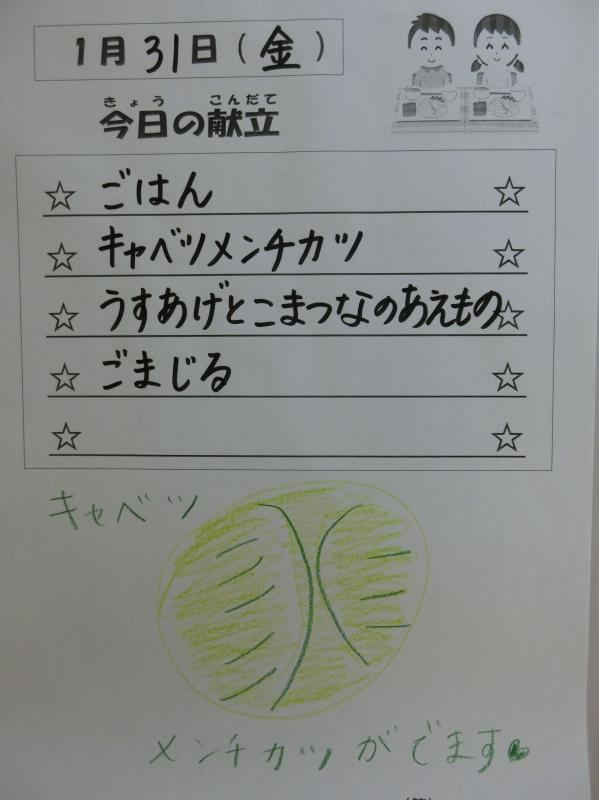 1月31日(金)
きょう こんだて
今日の献立
☆ ごはん ☆
☆ キャベツメンチカツ ☆
☆ うすあげとこまつなのあえもの ☆
☆ ごまじる ☆
☆ ☆
キャベツ
メンチカツがでます